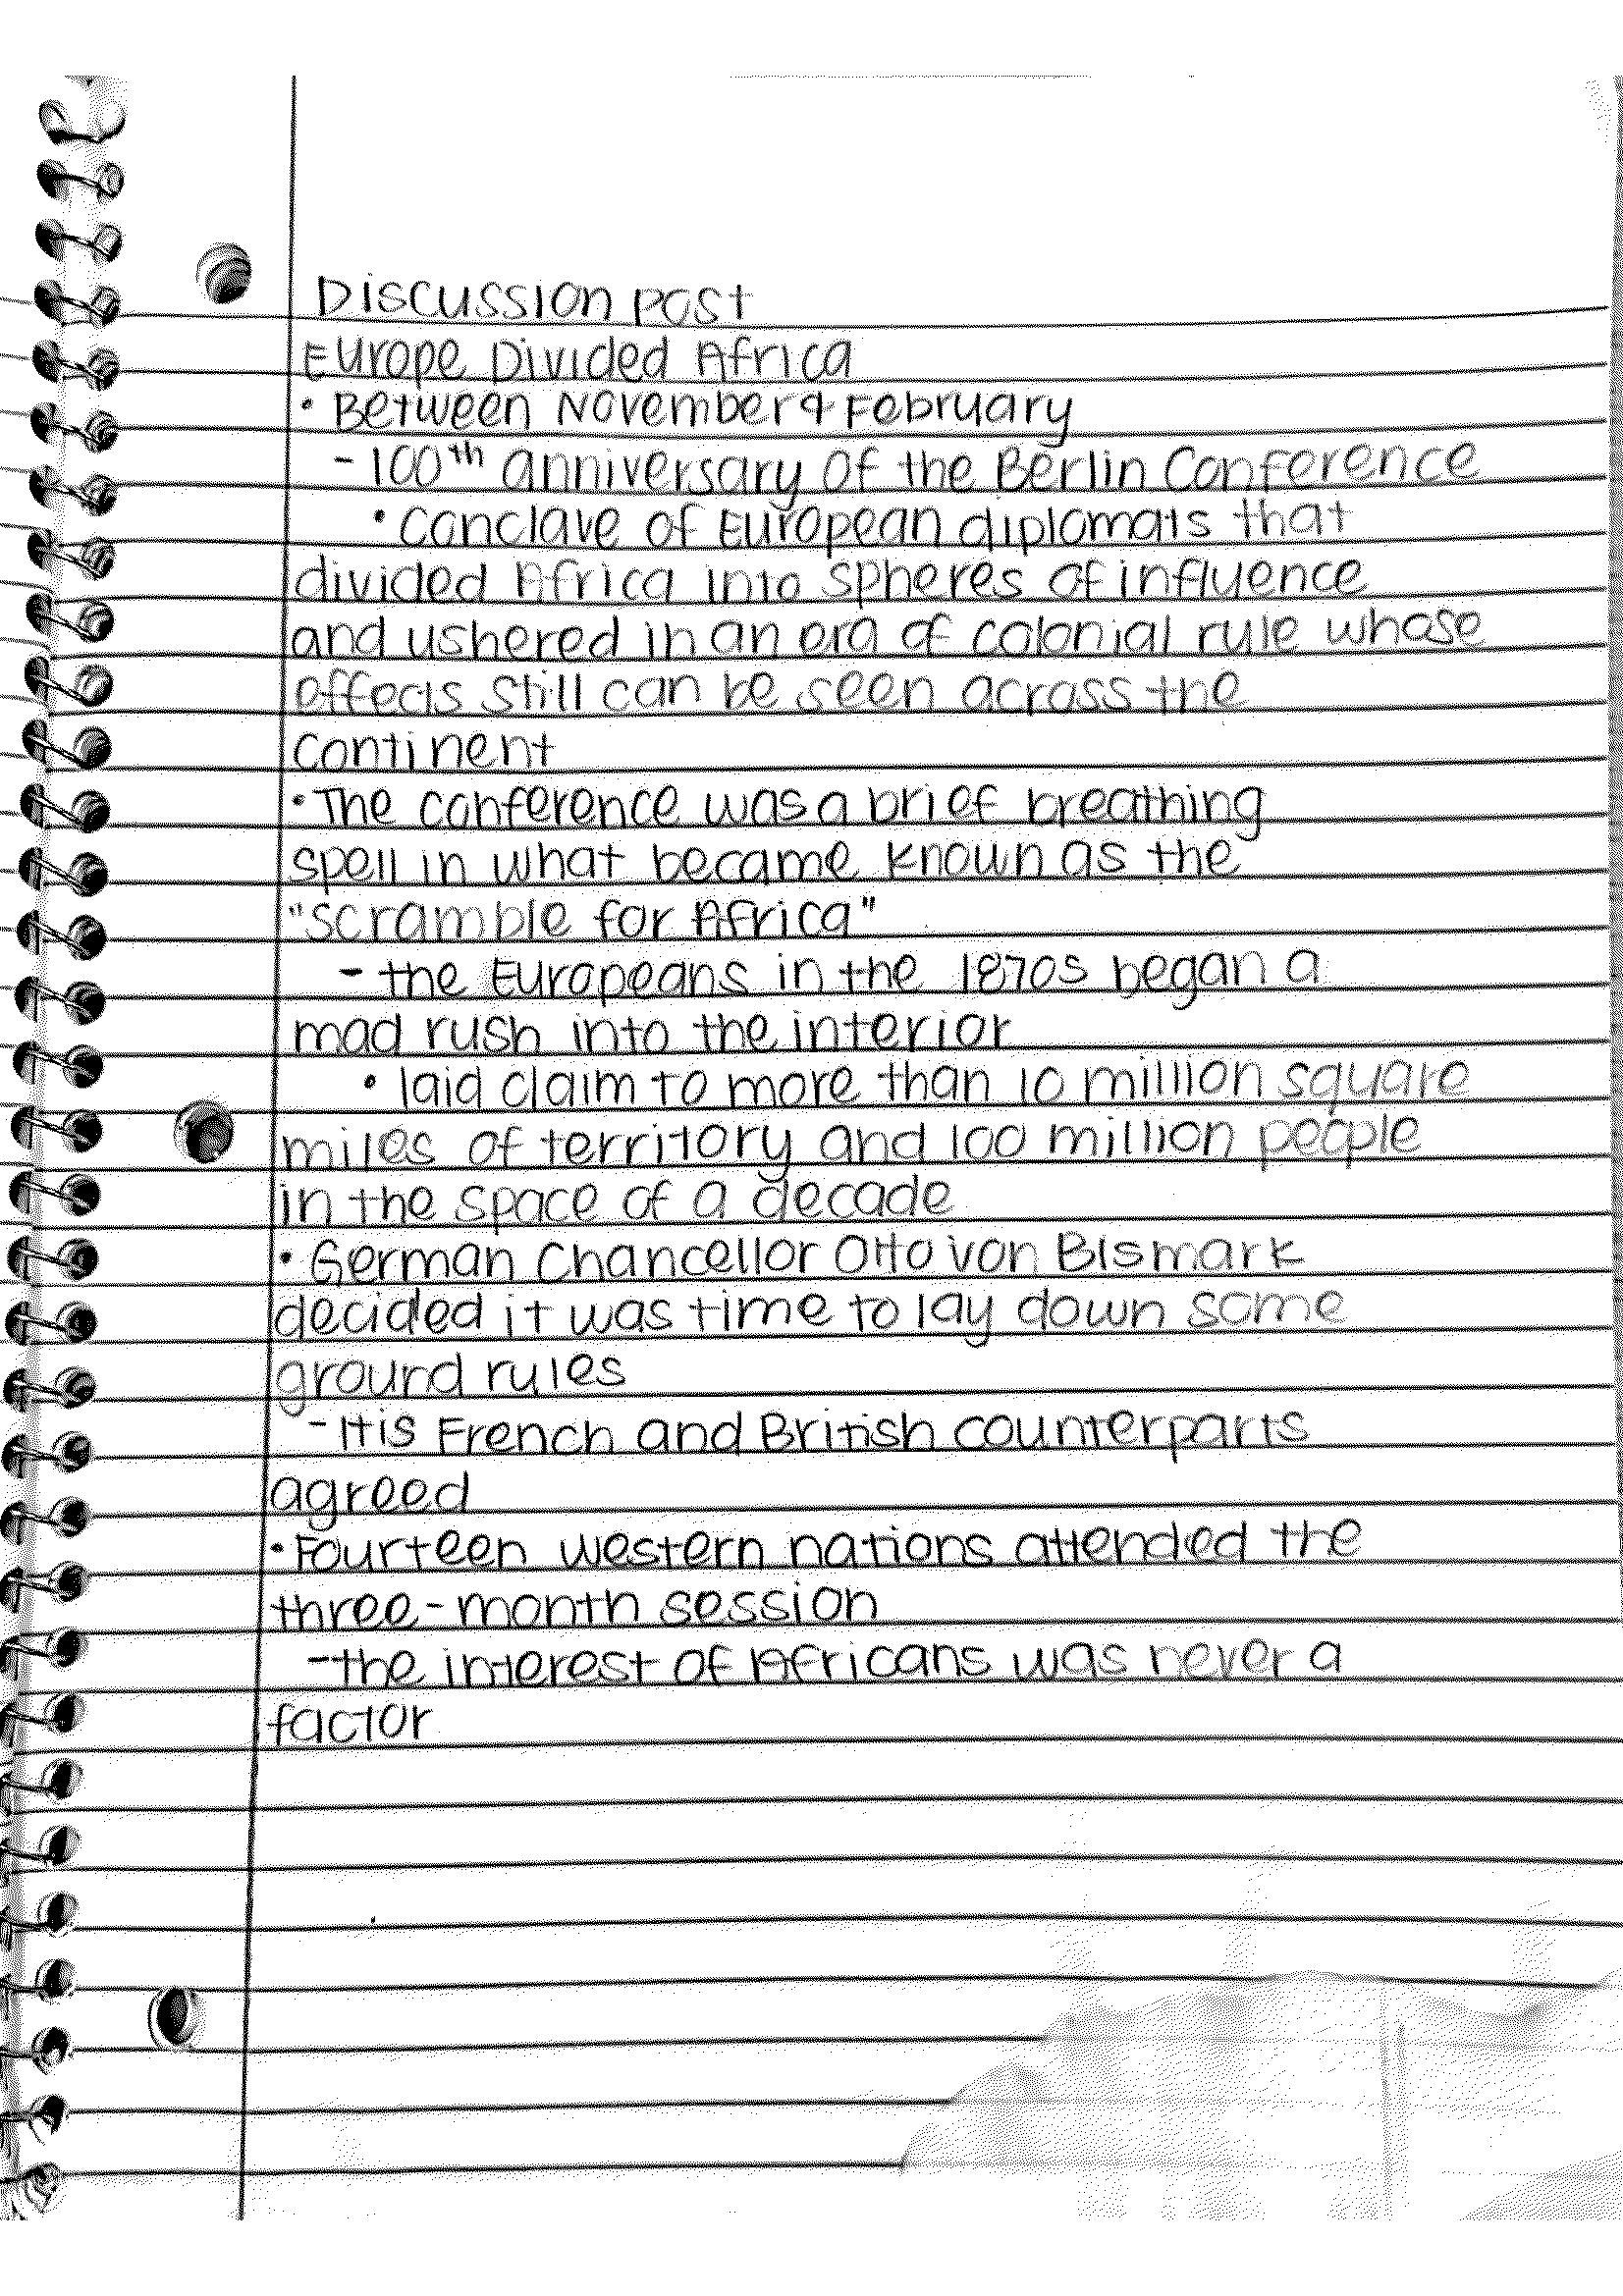 Discussion post
Europe Divided Africa
• Between November & February
- 100th anniversary of the Berlin Conference
• Conclave of European diplomats that
divided Africa into spheres of influence
and ushered in an era of colonial rule whose
effects still can be seen across the
continent
• The conference was a brief breathing
spell in what became known as the
"scramble for Africa"
- the Europeans in the 1870s began a
mad rush into the interior
• laid claim to more than 10 million square
miles of territory and 100 million people
in the space of a decade
• German Chancellor Otto von Bismark
decided it was time to lay down some
ground rules
- Itis French and British counterparts
agreed
• Fourteen western nations attended the
three-month session
- the interest of Africans was never a
factor